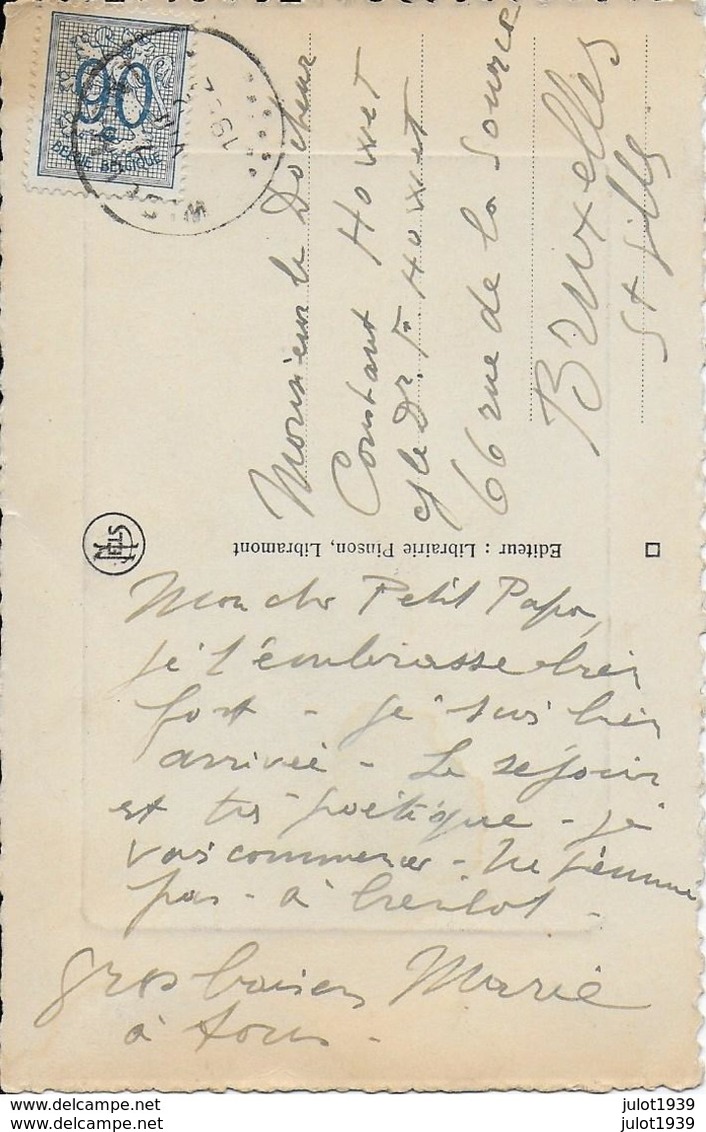 90
BELGIE-BELGIQUE
Monsieur le Docteur
Constant Howet
c/ le Dr. Fr. Howet
66 rue de la Source
Bruxelles
St Gilles
Editeur : Librairie Pinson, Libramont
NELS
Mon cher Petit Papa,
je t'embrasse bien
fort - je suis bien
arrivée - Le séjour
est très poétique - je
vais commencer - Ne
pas - à bientôt -
gros baisers Marie
à tous -
julot1939
julot1939
julot1939
julot1939